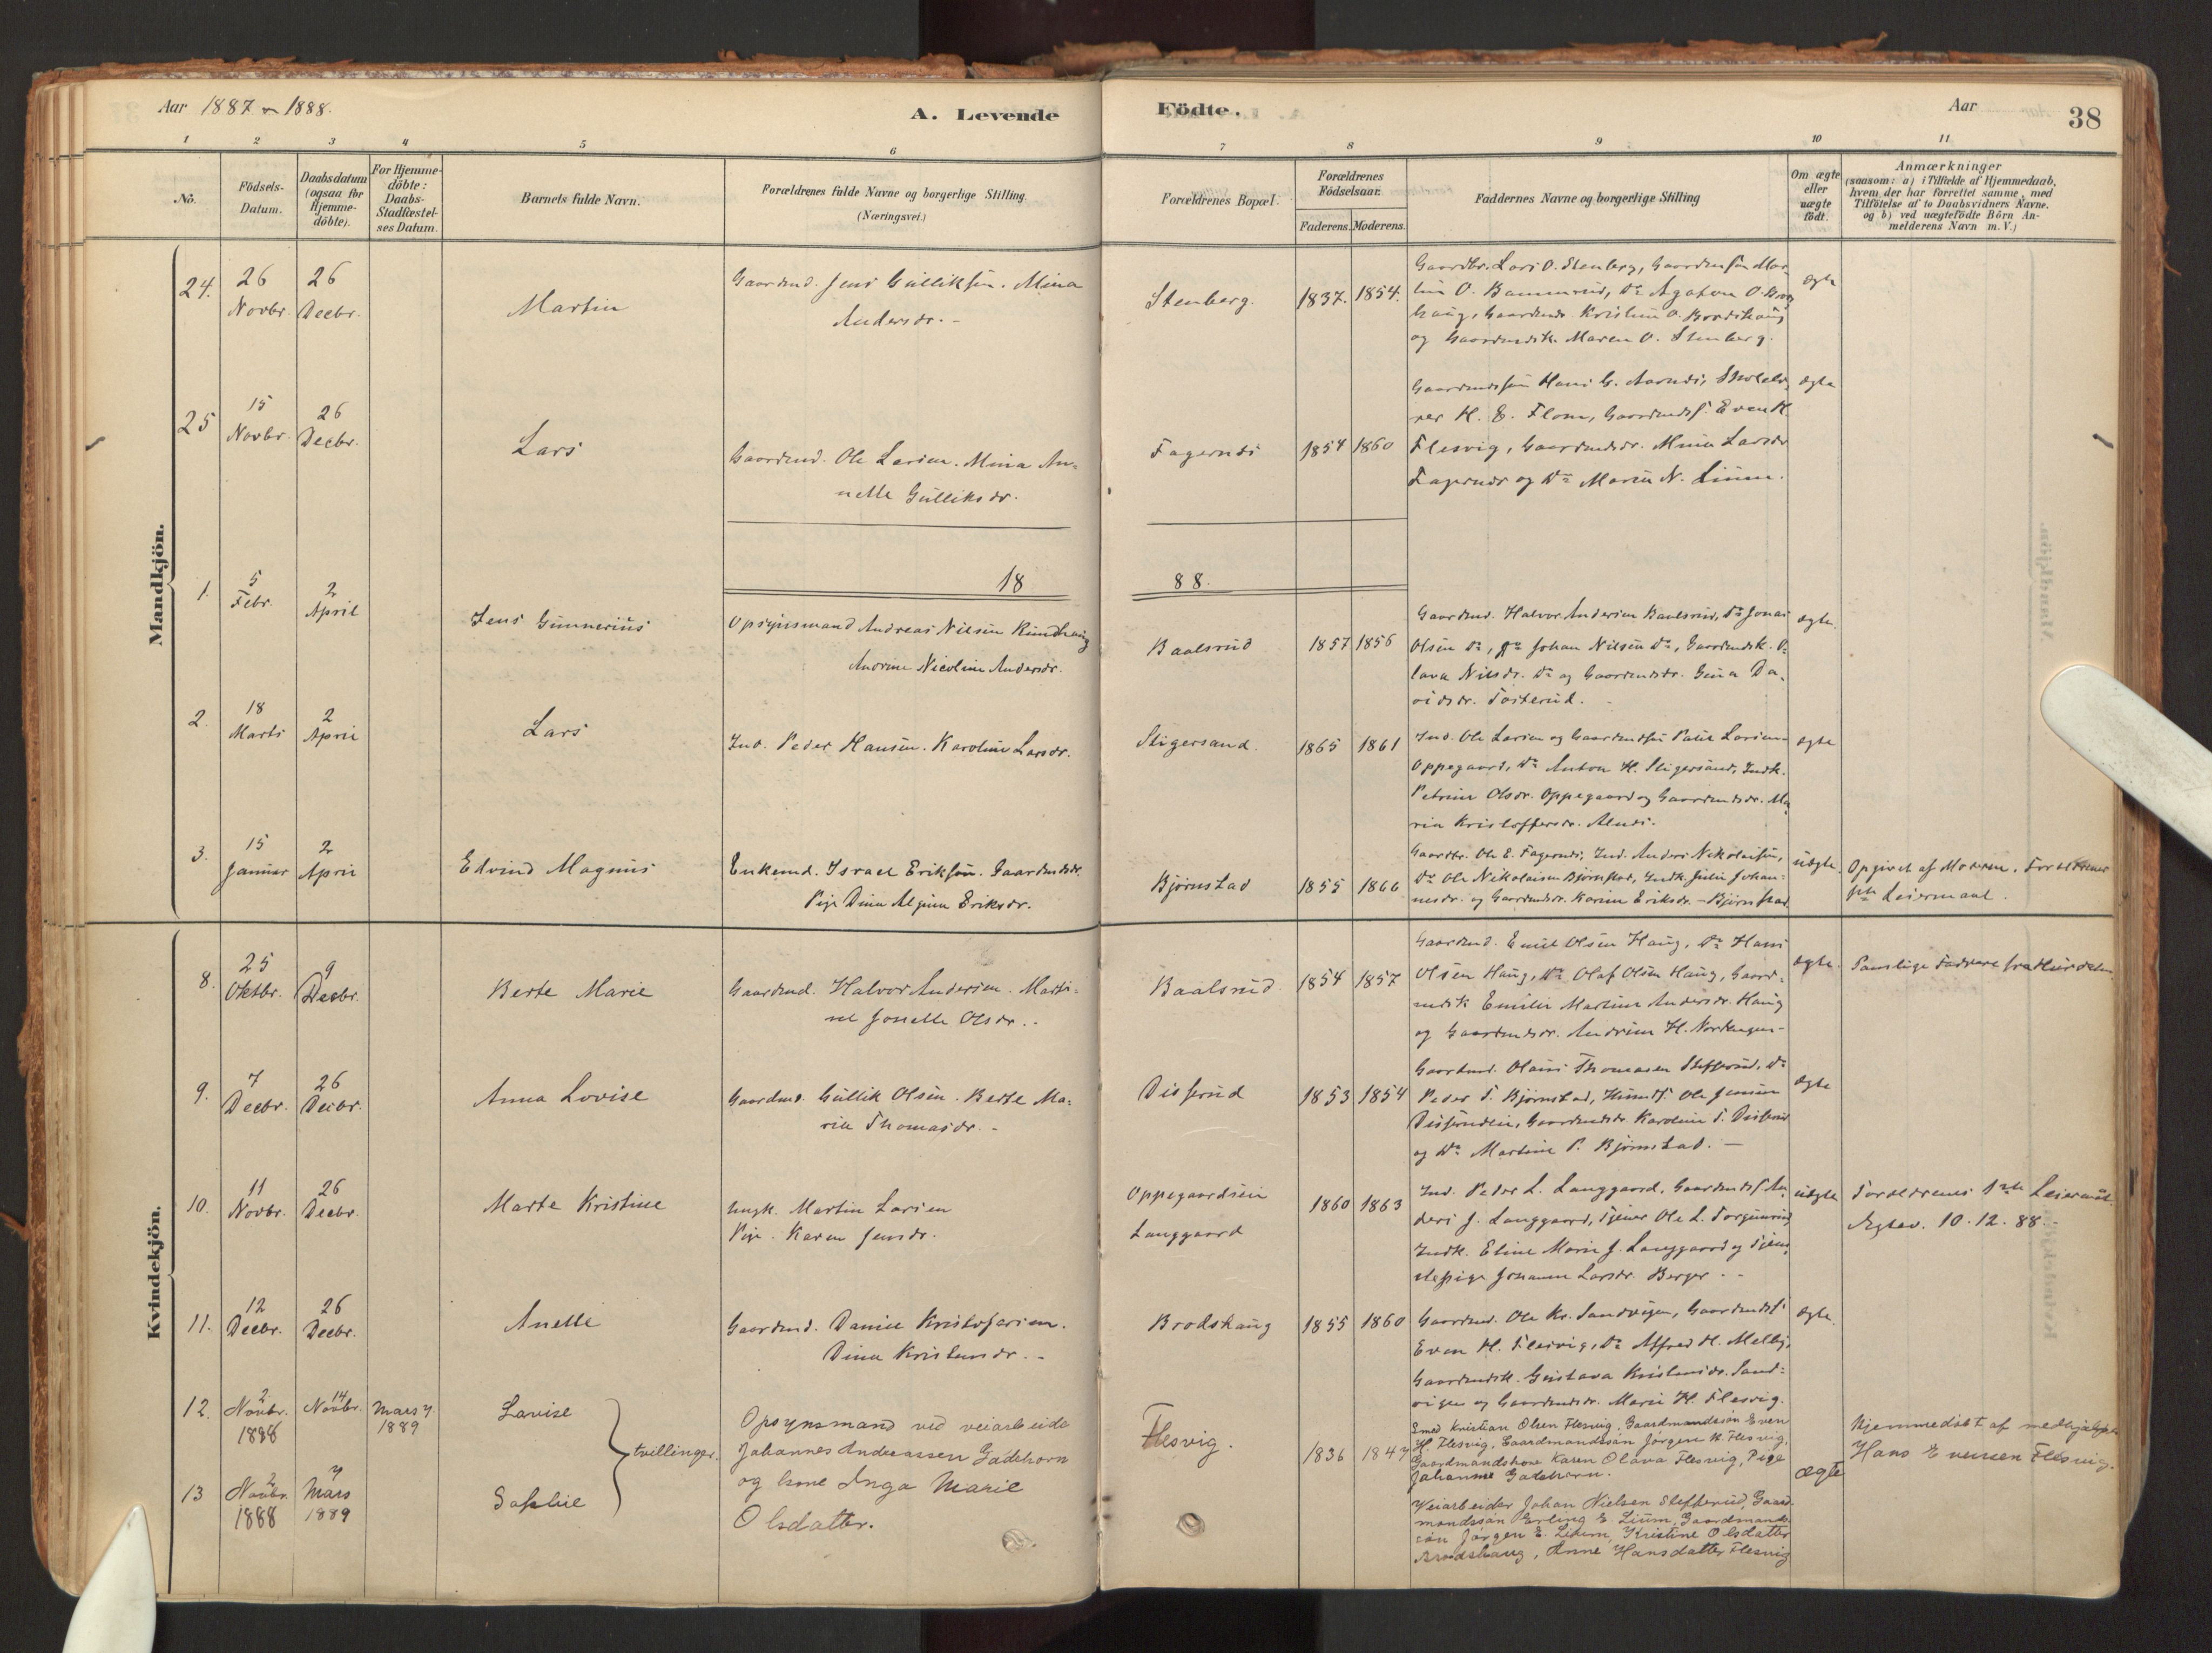 Aar 1887 & 1888.
A. Levende
Födte.
Aar
38
1 2 3 4 5 6 7 8 9 10 11
No.
Födsels-
Datum.
Daabsdatum
(ogsaa for
Hjemme-
döbte).
For Hjemme-
döbte:
Daabs-
Stadfæstel-
ses Datum.
Barnets fulde Navn.
Forældrenes fulde Navne og borgerlige Stilling.
(Næringsvei.)
Forældrenes Bopæl.
Forældrenes
Födselsaar.
Faderens. Moderens.
Faddernes Navne og borgerlige Stilling
Om ægte
eller
uægte
födt.
Anmærkninger
(saasom: a) i Tilfælde af Hjemmedaab,
hvem der har forrettet samme, med
Tilföielse af to Daabsvidners Navne.
og b) ved uægtefödte Börn An-
melderens Navn m.V.)
Mandkjön.
24. 26 Novbr. 26 Decbr.
Martin
Gaardmd. Jens Gulliksen. Mina
Andersdr. -
Stenberg. 1837. 1854.
Gaardbr. Lars O. Stenberg, Gaardmsøn Mar-
tin O. , do Agaton O.
haug, Kristine O. Brodshaug
og Maren O. Stenberg.
ægte
25 15 Novbr. 26 Decbr.
Lars
Gaardmd. Ole Larsen. Mina An-
nette Gulliksdr.
Fagernæs 1854 1860
Hans G. Aarnæs, Skolelæ-
rer H. E. Flom, Gaardmdss. Even H.
Flesvig, Gaardmdsdr. Larsdr
Fagernæs og do Marie N. Lium.
ægte
18 88.
1. 5 Febr. 2 April
Jens Gunnerius
Opsynsmand Andreas Nilsen Rundhaug
Andrine Nicoline Andersdr.
Baalsrud 1857 1856
Gaardmd. Halvor Andersen Baalsrud, do Jonas
Olsen do, do Johan Nilsen do, Gaardmdsk. O-
lava Nilsdr. do og Gaardmdsdr. Gina Da-
vidsdr. Tosterud.
ægte.
2. 18 Marts 2 April
Lars
Ind. Peder Hansen. Karoline Larsdr.
Stigersand. 1865 1861
Ind. Ole Larsen og Gaardmdssøn Larsen
Oppegaard, do Anton H. Stigersand, Indk.
Petrine Olsdr. Oppegaard og Gaardmdsdr. Ma-
rie Kristoffersdr. Alnæs.
ægte
3. 15 Januar 2 April
Edvind Magnus
Enkemd. Israel Eriksen. Gaardmdsdr.
Pige Dina Eriksdr.
Bjørnstad 1855 1866
Gaardbr. Ole E. Fagernæs, Ind. Anders Nikolaisen,
do Ole Nikolaisen Bjørnstad, Indk. Julie Johan-
nesdr. og Gaardmdsdr. Karine Eriksdr. Bjørnstad
uægte. Opgivet af Moderen. Forældrenes
Leiermaal.
Kvindekjön.
8. 25 Oktbr. 9 Decbr.
Berte Marie
Gaardmd. Halvor Andersen. Marti-
ne Jonette Olsdr. .
Baalsrud. 1854 1857
Gaardmd. Emil Olsen Haug, do Hans
Olsen Haug, do Olaf Olsen Haug, Gaard-
mdsk Emilie Martine Andersdr. Haug
og Gaardmdsdr. Andrine H. Nordengen -
ægte. Samtlige Faddere fra Hurdalen
9. 7 Decbr. 26 Decbr.
Anna Lovise
Gaardmd. Gullik Olsen. Berte Ma-
rie Thomasdr. -
Disserud 1853 1854
Gaardmd. Olaus Thomasen Stefferud, do
Peder T. Bjørnstad, Ole Jensen
Disserudeie, Gaardmdsdr Karoline T. Disserud
og do Martine P. Bjørnstad. -
ægte
10. 11 Novbr. 26 Decbr.
Marte Kristine
Ungk. Martin Larsen
Pige. Karen Jensdr.
Oppegaardseie
Langgaard 1860 1863
Ind. Peder L. Langgaard, Gaardmdss. An-
ders J. Langgaard, Tjener Ole L. Torgunrud,
Indk. Eline Marie J. Langgaard og Tjene-
stepige Johanne Larsdr. Berger. -
uægte Forældrenes 1ste Leiermaal.
Ægtev. 10.12.88.
11. 12 Decbr. 26 Decbr.
Anette
Gaardmd. Daniel Kristofersen.
Dina Kristensdr. -
Brodshaug 1855 1860
Gaardmd. Ole Kr. Sandvigen, Gaardmdss.
Even H. Flesvig, do Alfred H. Melby,
Gaardmdsk. Gustava Kristensdr. Sand-
vigen og Gaardmdsdr. Marie H. Flesvig.
ægte.
12. 2. Novbr. 1888 14 Novbr. Mars 7 1889
Lavise
13 2 Novbr. 1888 7 Mars 1889
Sophie
tvillinger.
Opsynsmand ved veiarbeide
Johannes Andreassen Gadehorn
og kone Inga Marie
Olsdatter.
Flesvig. 1836 1847
Smed Kristian Olsen Flesvig, Gaardmandssøn Even
H. Flesvig, Gaardmandssøn Jørgen H. Flesvig,
Gaardmandskone Karen Olava Flesvig, Pige
Johanne Gadehorn.
Veiarbeider Johan Nielsen Stefferud, Gaard-
mandssøn Erling E. Lium, Gaardmands-
søn Jørgen E. Lium, Kristine Olsdatter
Brodshaug, Anne Hansdatter Flesvig
ægte
Hjemmedøbt af medhjælper
Hans Evensen Flesvig.